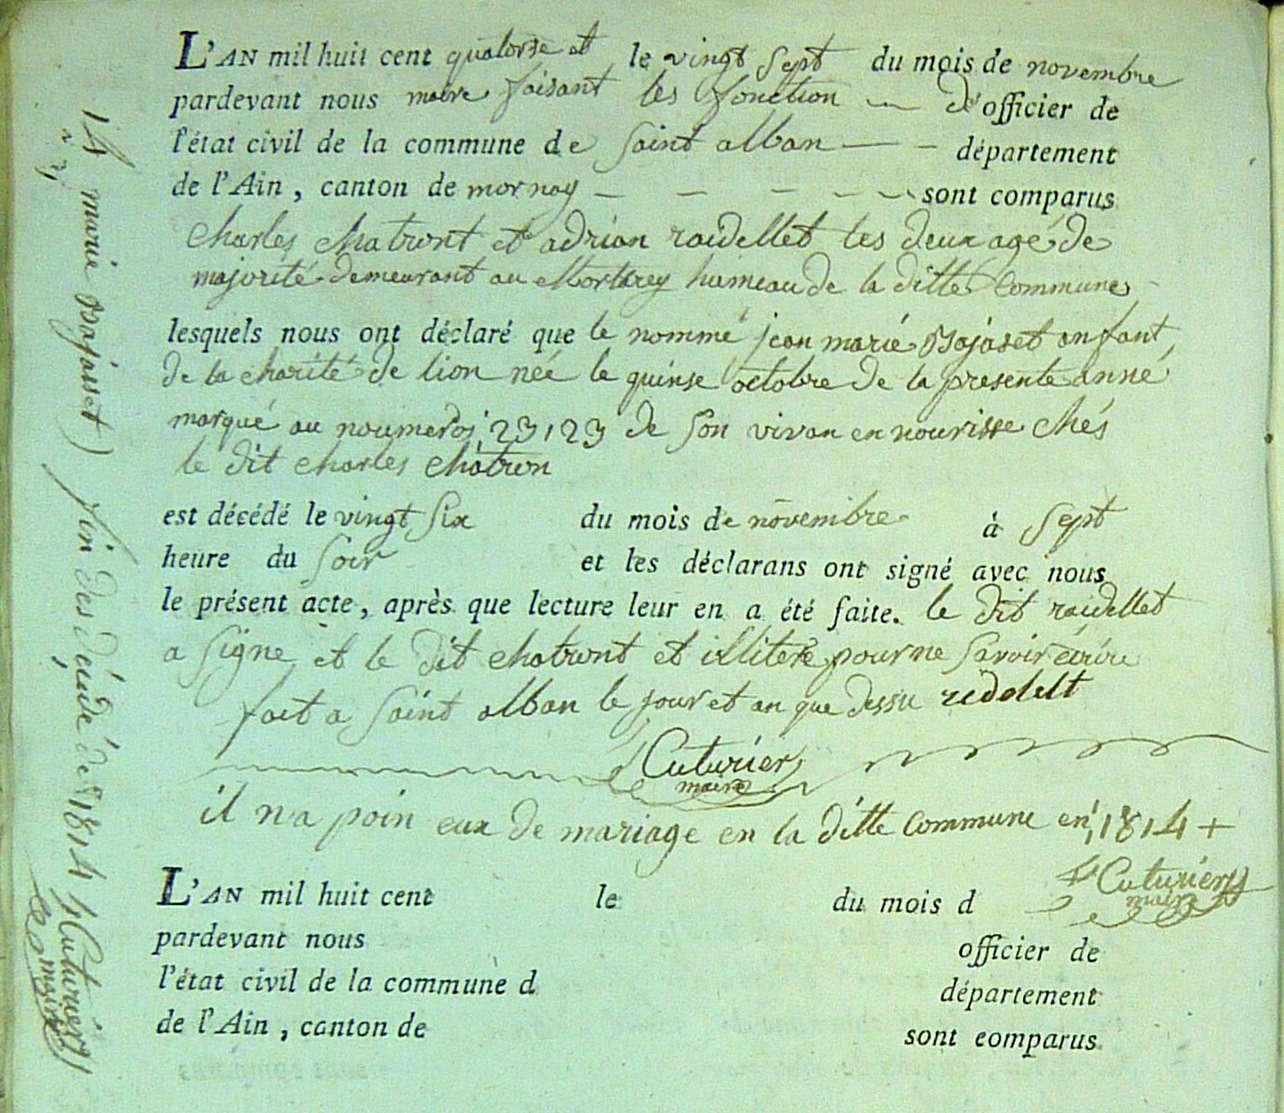 L'AN mil huit cent quatorse et le vingt sept du mois de novembre
pardevant nous maire faisant les fonction d'officier de
l'état civil de la commune de saint alban département
de l'Ain, canton de mornay sont comparus
charles chatront et adrian raidellet les deux agé de
majorité demeurant au Mortarey hameau de la ditte commune
lesquels nous ont déclaré que le nommé jean marié Bajaset anfant
de la charité de lion née le quinse octobre de la presente anné
marqué au noumeros 23123 de son vivan en nourisse chés
le dit charles chatron
est décédé le vingt six du mois de novembre à sept
heure du soir et les déclarans ont signé avec nous
le présent acte, après que lecture leur en a été faite. le dit raidellet
a signe et le dit chatront et illiteré pour ne savoir écrire
fait a saint alban le jour et an que dessu redelelt
Cuturier
maire
il n'a poin eux de mariage en la ditte commune en 1814 +
Cuturier
maire
L'AN mil huit cent le du mois d
pardevant nous officier de
l'état civil de la commune d département
de l'Ain, canton de sont comparus
14 marie Bajasset) fin des décédé de 1814 Cuturier
maire